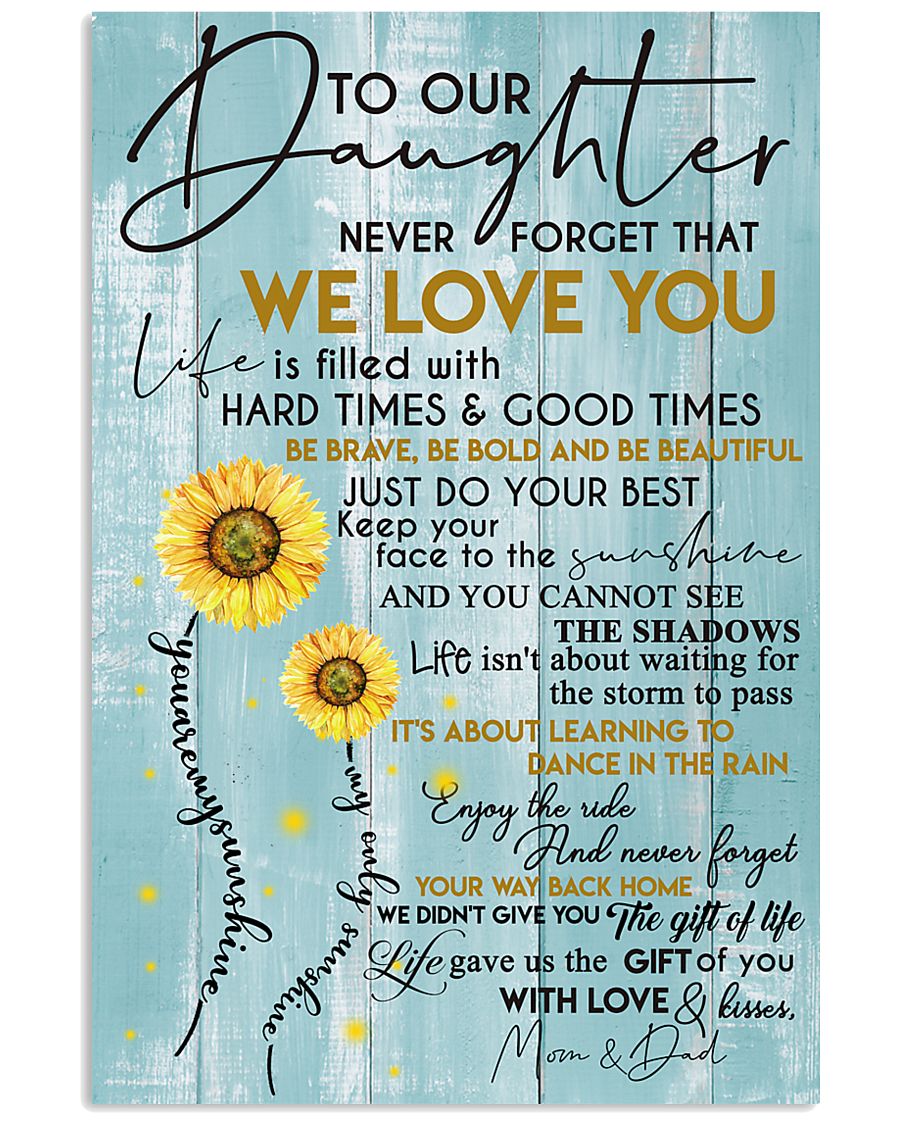 TO OUR
Daughter
NEVER FORGET THAT
WE LOVE YOU
Life is filled with
HARD TIMES & GOOD TIMES
BE BRAVE, BE BOLD AND BE BEAUTIFUL
JUST DO YOUR BEST
Keep your
face to the sunshine
AND YOU CANNOT SEE
THE SHADOWS
Life isn't about waiting for
the storm to pass
IT'S ABOUT LEARNING TO
DANCE IN THE RAIN
Enjoy the ride
And never forget
YOUR WAY BACK HOME
WE DIDN'T GIVE YOU The gift of life
Life gave us the GIFT of you
WITH LOVE & kisses,
Mom & Dad
you are my sunshine
my only sunshine